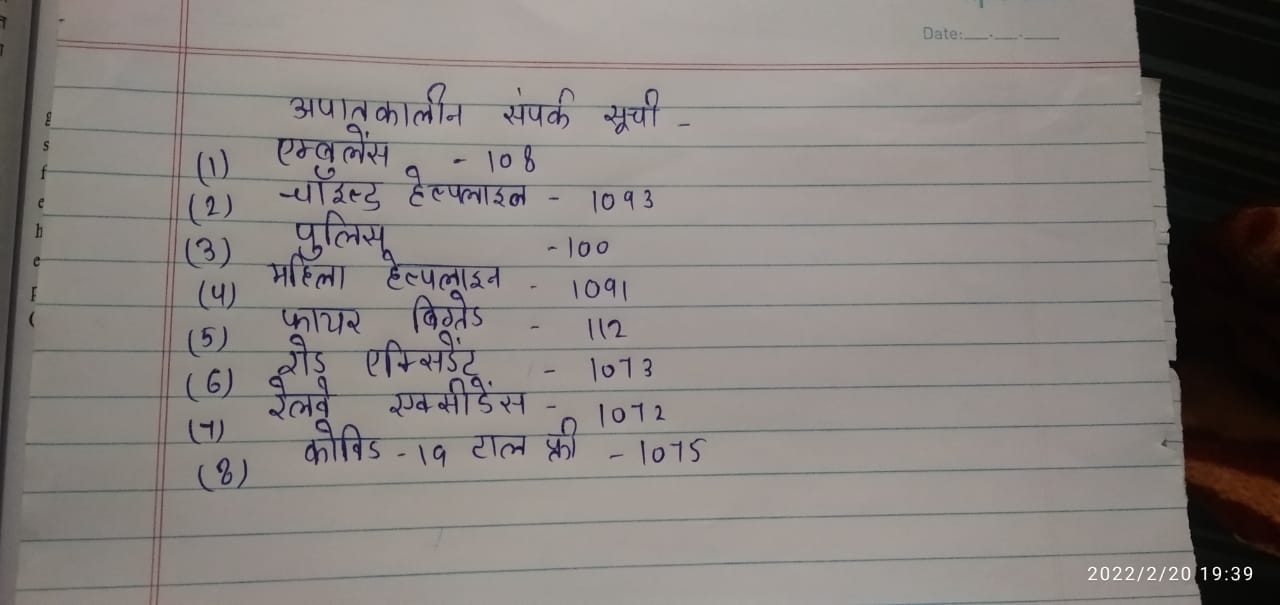 Date:__.__.__
अपातकालीन संपर्क सूची -
(1) एम्बुलेंस - 108
(2) चॉइल्ड हेल्पलाइन - 1093
(3) पुलिस - 100
(4) महिला हेल्पलाइन - 1091
(5) फायर बिग्रेड - 112
(6) रोड एक्सिडेंट - 1073
(7) रेलवे एक्सीडेंस - 1072
(8) कोविड - 19 टाल फ्री - 1075
2022/2/20 19:39